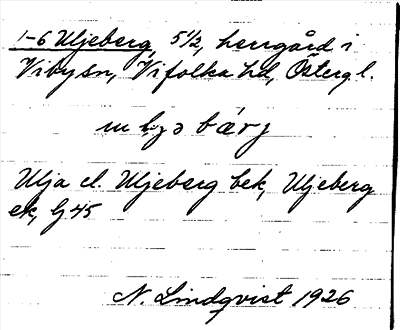 1-6 Uljeberg, 5 1/2, herrgård i
Vibysn, Vifolka hd, Östergl.
bærj
Ulja el. Uljeberg bek, Uljeberg
ek, G 45
N. Lindqvist 1926